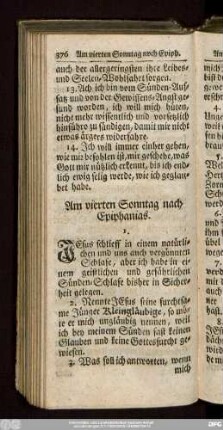 576 Am vierten Sonntag nach Epiph.
auch der allergeringsten ihre Leibes-
und Seelen-Wohlfahrt sorgen.
13. Ach ich bin vom Sünden-Auf-
satz und von der Gewissens-Angst ge-
sund worden, ich will mich hüten,
nicht mehr wissentlich und vorsetzlich
hinführo zu sündigen, damit mir nicht
etwas ärgers widerfahre.
14. Ich will immer einher gehen,
wie mir befohlen ist, mir geschehe, was
Gott mir nützlich erkennt, bis ich end-
lich ewig selig werde, wie ich geglau-
bet habe.
Am vierten Sonntag nach
Epiphanias.
1.
JEsus schlieff in einem natürli-
chen und uns auch vergönnten
Schlafe, aber ich habe in ei-
nem geistlichen und gefährlichen
Sünden-Schlafe bisher in Sicher-
heit gelegen.
2. Nennte JEsus seine furchtsa-
me Jünger Kleingläubige, so mü-
re er mich ungläubig nennen, weil
ich bey meinem Sünden fast keinen
Glauben und keine Gottesfurcht ge-
wiesen.
3. Was soll ich antworten, wenn
mich